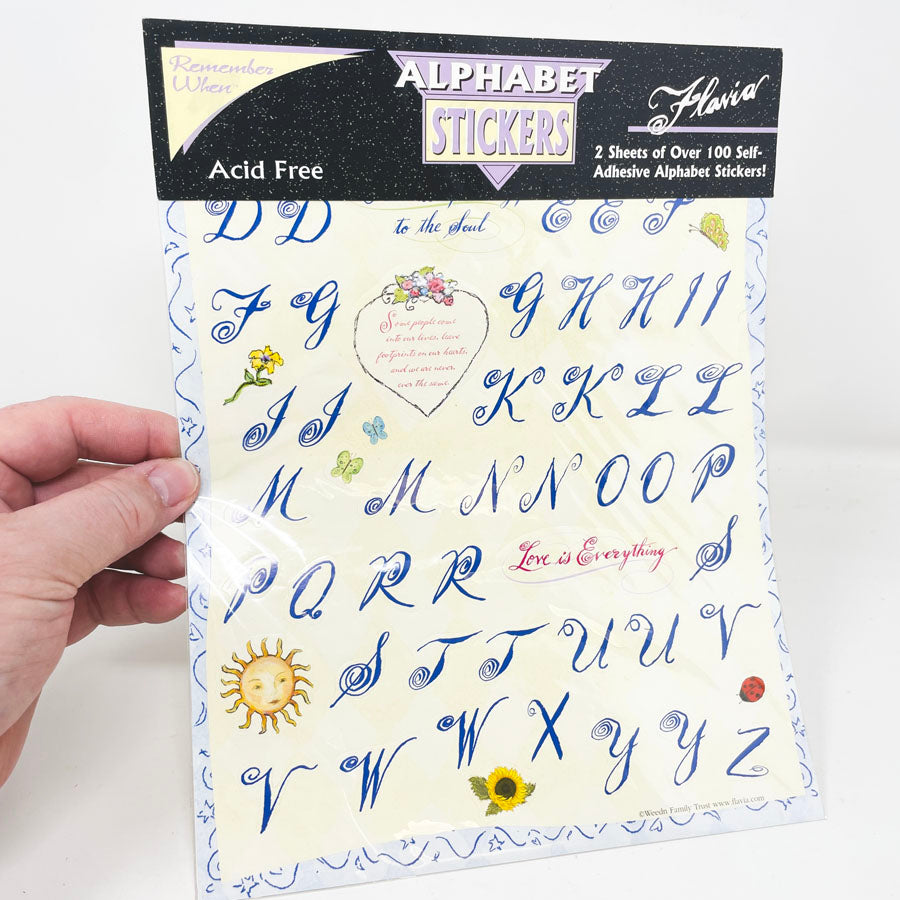 Remember
When™
ALPHABET
STICKERS
Flavia
Acid Free
2 Sheets of Over 100 Self-
Adhesive Alphabet Stickers!
D D
to the Soul
E E F
F G
Some people come
into our lives, leave
footprints on our hearts,
and we are never
ever the same.
G H H I I
J J
K K L L
M M N N O O P
P Q R R
Love is Everything
S
S T T U U V
V W W X Y Y Z
©Weedn Family Trust www.flavia.com